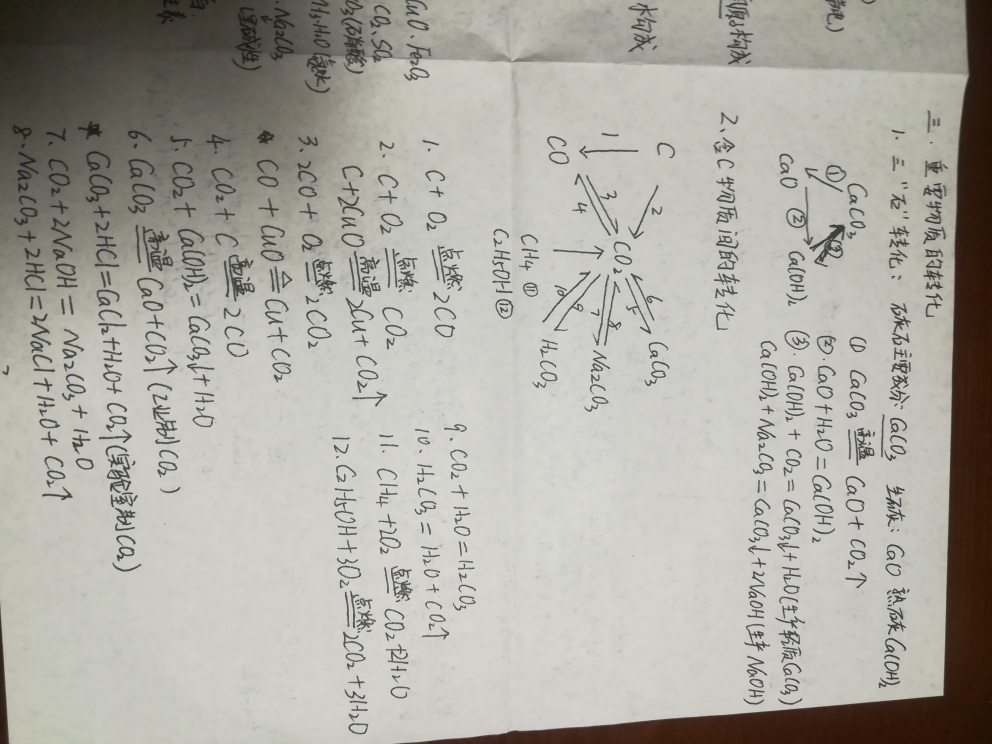 三. 重要物质的转化
1. 三“石”转化: 石灰石主要成份: CaCO₃ 生石灰: CaO 熟石灰 Ca(OH)₂
CaCO₃
① ③
CaO ② Ca(OH)₂
① CaCO₃ 高温 CaO + CO₂↑
②. CaO + H₂O = Ca(OH)₂
③. Ca(OH)₂ + CO₂ = CaCO₃↓ + H₂O (生产轻质CaCO₃)
Ca(OH)₂ + Na₂CO₃ = CaCO₃↓ + 2NaOH (生产NaOH)
2、含C物质间的转化
C
1 2
CO 3 4 CO₂ 6 5 CaCO₃
8 7 Na₂CO₃
10 9 H₂CO₃
CH₄ ⑪
C₂H₅OH ⑫
1. C + O₂ 点燃 2CO
2. C + O₂ 点燃 CO₂
C + 2CuO 高温 2Cu + CO₂↑
3. 2CO + O₂ 点燃 2CO₂
CO + CuO ≙ Cu + CO₂
4. CO₂ + C 高温 2CO
5. CO₂ + Ca(OH)₂ = CaCO₃↓ + H₂O
6. CaCO₃ 高温 CaO + CO₂↑ (工业制CO₂)
CaCO₃ + 2HCl = CaCl₂ + H₂O + CO₂↑ (实验室制CO₂)
7. CO₂ + 2NaOH = Na₂CO₃ + H₂O
8. Na₂CO₃ + 2HCl = 2NaCl + H₂O + CO₂↑
9. CO₂ + H₂O = H₂CO₃
10. H₂CO₃ = H₂O + CO₂↑
11. CH₄ + 2O₂ 点燃 CO₂ + 2H₂O
12. C₂H₅OH + 3O₂ 点燃 2CO₂ + 3H₂O
构成
构成
CuO、Fe₂O₃
CO₂、SO₂
Na₂CO₃
(呈碱性)